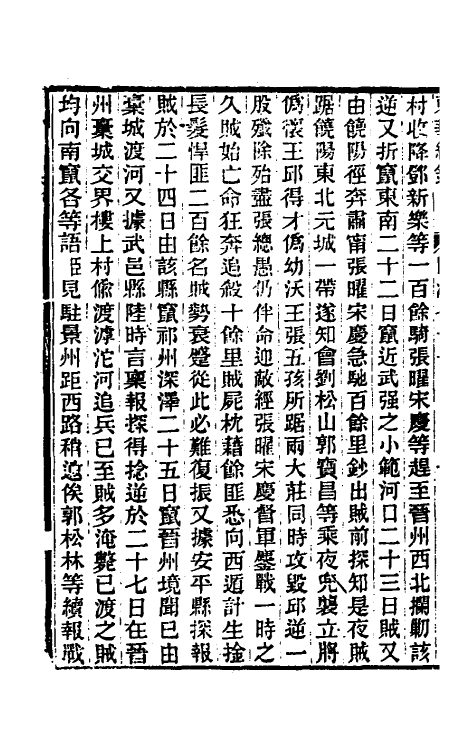 村收降鄧新樂等一百餘騎張曜宋慶等趕至晉州西北攔勦該
逆又折竄東南二十二日竄近武强之小範河口二十三日賊又
由饒陽徑奔肅甯張曜宋慶急馳百餘里鈔出賊前探知是夜賊
踞饒陽東北元城一帶遂知會劉松山郭寶昌等乘夜兜襲立將
僞懷王邱得才僞幼沃王張五孩所踞兩大莊同時攻毀邱逆一
股殲除殆盡張總愚仍伴命迎敵經張曜宋慶督軍鏖戰一時之
久賊始亡命狂奔追殺十餘里賊屍枕藉餘匪悉向西遁計生擒
長髮悍匪二百餘名賊勢衰蹙從此必難復振又據安平縣探報
賊於二十四日由該縣竄祁州深澤二十五日竄晉州境聞已由
藁城渡河又據武邑縣陸時言稟報探得捻逆於二十七日在晉
州藁城交界樓上村偷渡滹沱河追兵已至賊多淹斃已渡之賊
均向南竄各等語臣見駐景州距西路稍遠俟郭松林等續報戰